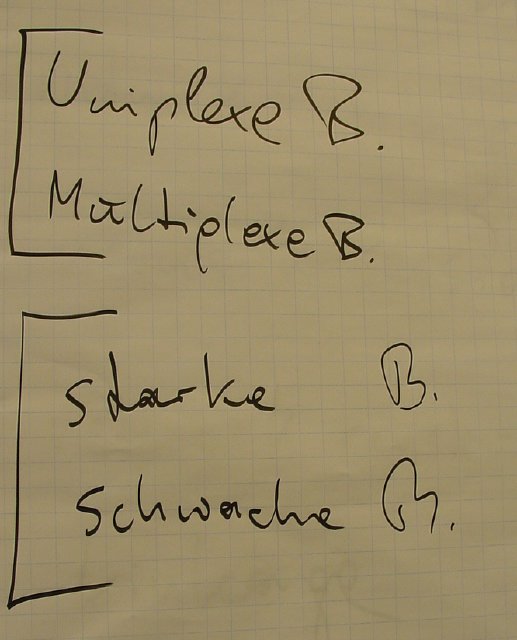 Uniplexe B.
Multiplexe B.
starke B.
schwache B.